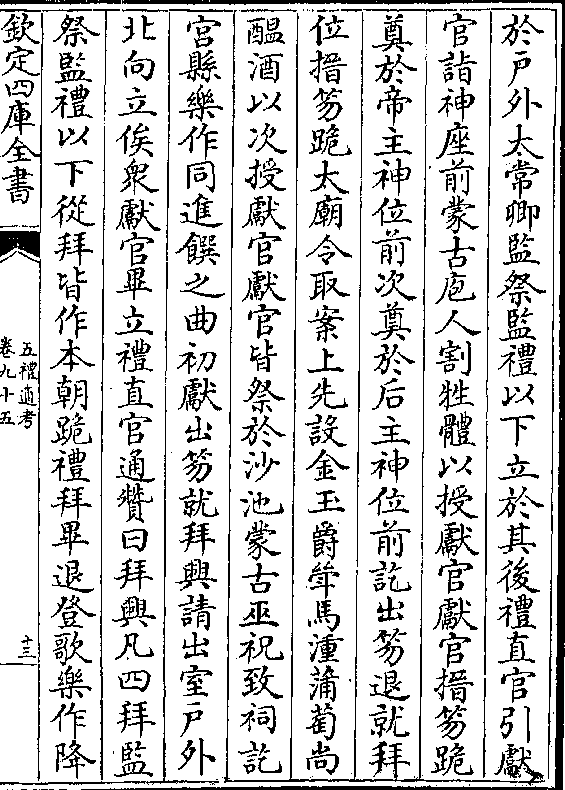 於户外太常卿監祭監禮以下立於其後禮直官引獻
官詣神座前蒙古庖人割牲體以授獻官獻官搢笏跪
奠於帝主神位前次奠於后主神位前訖出笏退就拜
位搢笏跪太廟令取案上先設金玉爵斝馬湩蒲萄尚
醖酒以次授獻官獻官皆祭於沙池蒙古巫祝致祠訖
宮縣樂作同進饌之曲初獻出笏就拜興請出室户外
北向立俟衆獻官畢立禮直官通贊曰拜興凡四拜監
祭監禮以下從拜皆作本朝跪禮拜畢退登歌樂作降
欽定四庫全書
五禮通考
卷九十五
十三